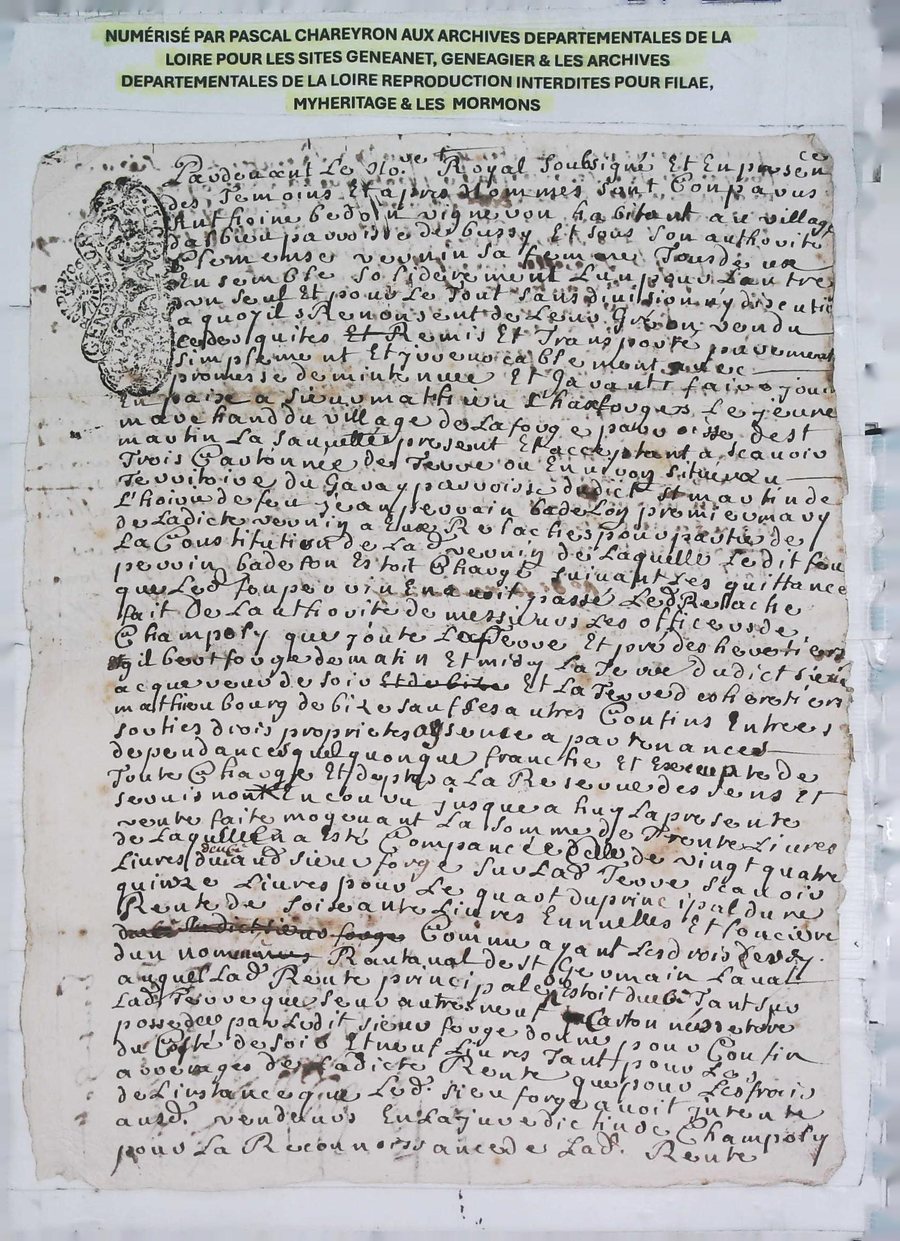 NUMÉRISÉ PAR PASCAL CHAREYRON AUX ARCHIVES DEPARTEMENTALES DE LA
LOIRE POUR LES SITES GENEANET, GENEAGIER & LES ARCHIVES
DEPARTEMENTALES DE LA LOIRE REPRODUCTION INTERDITES POUR FILAE,
MYHERITAGE & LES MORMONS
Pardevant Le No.re Royal Soubsigné Et En presen ce
des Temoins Et apres Nommes sont Conparus
Anthoine bedoin vigneron habitant au village
dalbieu parroisse de bussy Et sous son authorité
vernin sa femme Tous deux
Ensemble soliderement L'un pour Lautre
un seul Et pour Le Tout sans division ny discutio
a quoy ils Renonsent de Leur Gré on vendu
cedes quites Et Remis Et Transporte purement
simplement Et yrrevocablement avec
promesse de mintenue Et Garanti faire jouir
En paix a sieur mathieu Chasfouges Le jeune
marchand du village de La fouge parroisse de st
martin La sauveté present Et acceptant a scavoir
Trois Cartonnée de Terre ou Environ située au
Territoire du Garay parroisse dudict st martin de
L'hoirie de feu jean perrin badelon premier mary
de Ladicte vernin a Eux Relaches pour partie de
La Constitution de La d. vernin de Laquelle Ledit feu
perrin badelon Estoit Chargé suivant Les quittance
que Led. feu perrin En avoit passé Led. Relache
fait De Lauthorité de messieurs Les officiers de
Champoly que joute La Terre Et pré des heretiers
gilbert fouge de matin Et midy La Terre dudict sieur
acquereur de soir Et de bize Et La Terre d coheretiers
mathieu bourg de bize sauf Ses autres Confins Entrées
sorties drois proprietes a partenances
dependances quelquonque franche Et Exempte de
Toute Charge Et depte a La Reserve des sens Et
servis non Encouru jusque a huy La presente
vente faite moyenant La somme de Trente Livres
de Laquelle En a Esté Compancée Celle de vingt quatre
Livres deue aud. sieur forge sur Lad. Terre scavoir
quinze Livres pour Le quart du principal du ne
Rente de soisante Livres Ennuelles Et fonciere
Comme ayant Les drois Cedes
dun nommé Rantanal de st Germain Laval
auquel Lad. Rente principale Estoit dueb Tant sur
Lad. Terre que sur autre neuf Carton née de terre
possedée par Ledit sieur fouge donne pour Confin
du Costé de soir Et neuf Livres Tant pour Les
arrerages de Ladicte Rente que pour Les frais
de Linstance que Led. sieur forge avoit intente
ausd. vendeurs En La juredictin de Champoly
pour La Reconnoissance de Lad. Rente